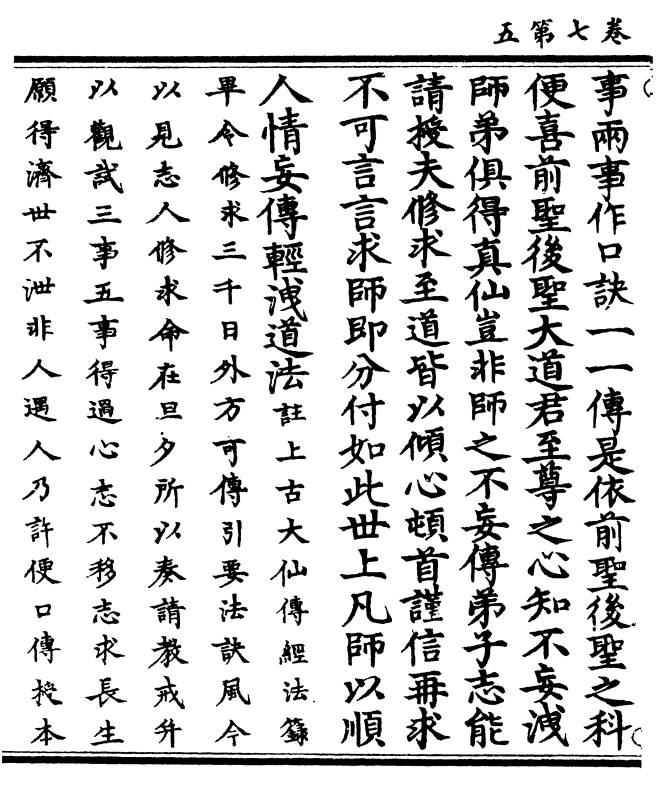 卷七第五
事兩事作口訣一一傳是依前聖後聖之科
便喜前聖後聖大道君至尊之心知不妄洩
師弟俱得真仙豈非師之不妄傳弟子志能
請授夫修求至道皆以傾心頓首謹信再求
不可言言求師即分付如此世上凡師以順
人情妄傳輕洩道法註上古大仙傳經法籙
畢令修求三千日外方可傳引要法訣風今
以見志人修求命在旦夕所以奏請教戒升
以觀試三事五事得過心志不移志求長生
願得濟世不泄非人遇人乃許便口傳授本